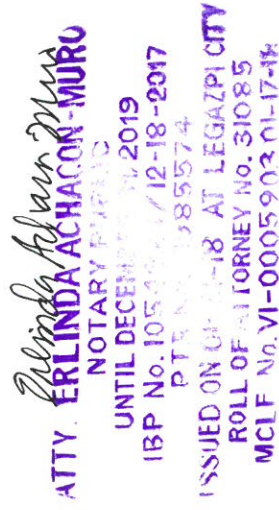 Erlinda Achacon Muro
ATTY. ERLINDA ACHACON-MURO
NOTARY PUBLIC
UNTIL DECEM 2019
IBP No. 105 / 12-18-2017
PTR 85574
ISSUED ON 18 AT LEGAZPI CITY
ROLL OF ATTORNEY No. 31085
MCLE No. VI-0005903 01-17-18